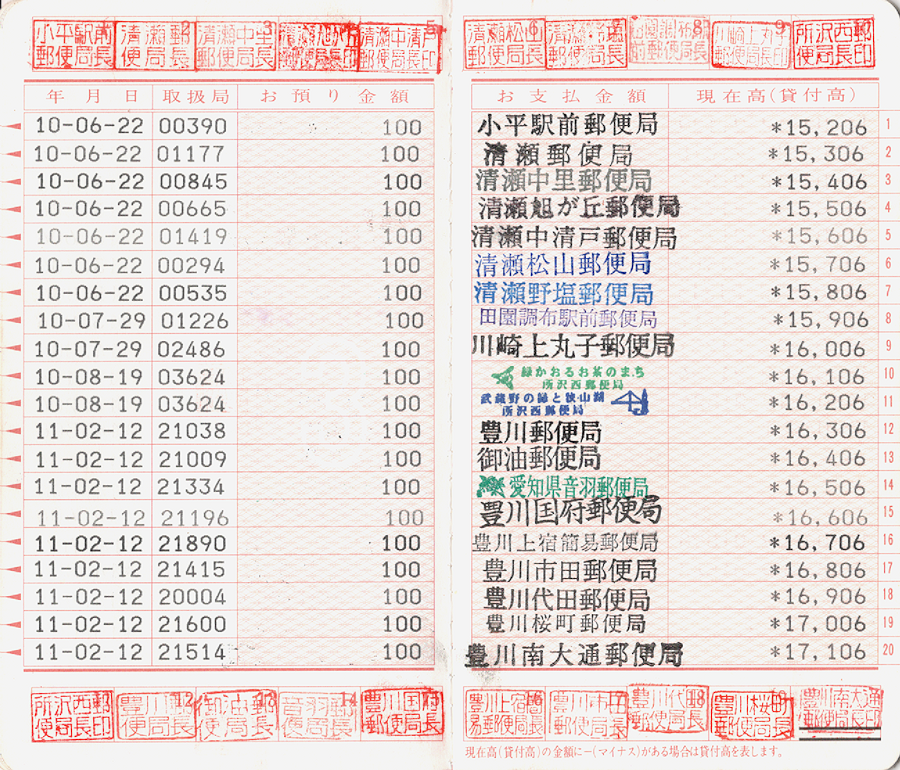 小平駅前郵便局長印
清瀬郵便局長印 2
清瀬中里郵便局長印 3
清瀬旭が丘郵便局長印
清瀬中清戸郵便局長印 5
清瀬松山郵便局長印 6
清瀬野塩郵便局長印
田園調布駅前郵便局長印 8
川崎上丸子郵便局長印 9
所沢西郵便局長印 10
年月日 取扱局 お預り金額 お支払金額 現在高(貸付高)
10-06-22 00390 100 小平駅前郵便局 *15,206 1
10-06-22 01177 100 清瀬郵便局 *15,306 2
10-06-22 00845 100 清瀬中里郵便局 *15,406 3
10-06-22 00665 100 清瀬旭が丘郵便局 *15,506 4
10-06-22 01419 100 清瀬中清戸郵便局 *15,606 5
10-06-22 00294 100 清瀬松山郵便局 *15,706 6
10-06-22 00535 100 清瀬野塩郵便局 *15,806 7
10-07-29 01226 100 田園調布駅前郵便局 *15,906 8
10-07-29 02486 100 川崎上丸子郵便局 *16,006 9
10-08-19 03624 100 緑かおるお茶のまち 所沢西郵便局 *16,106 10
10-08-19 03624 100 武蔵野の緑と狭山湖 所沢西郵便局 *16,206 11
11-02-12 21038 100 豊川郵便局 *16,306 12
11-02-12 21009 100 御油郵便局 *16,406 13
11-02-12 21334 100 愛知県音羽郵便局 *16,506 14
11-02-12 21196 100 豊川国府郵便局 *16,606 15
11-02-12 21890 100 豊川上宿簡易郵便局 *16,706 16
11-02-12 21415 100 豊川市田郵便局 *16,806 17
11-02-12 20004 100 豊川代田郵便局 *16,906 18
11-02-12 21600 100 豊川桜町郵便局 *17,006 19
11-02-12 21514 100 豊川南大通郵便局 *17,106 20
所沢西郵便局長印
豊川郵便局長印 12
御油郵便局長印 13
音羽郵便局長印 14
豊川国府郵便局長印
豊川上宿簡易郵便局長印 16
豊川市田郵便局長印
豊川代田郵便局長印 18
豊川桜町郵便局長印 19
豊川南大通郵便局長印
現在高(貸付高)の金額に−(マイナス)がある場合は貸付高を表します。